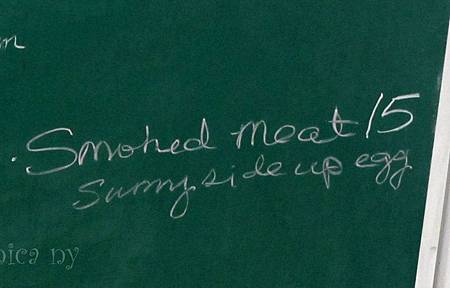 Smoked meat 15
Sunny side up egg
ny